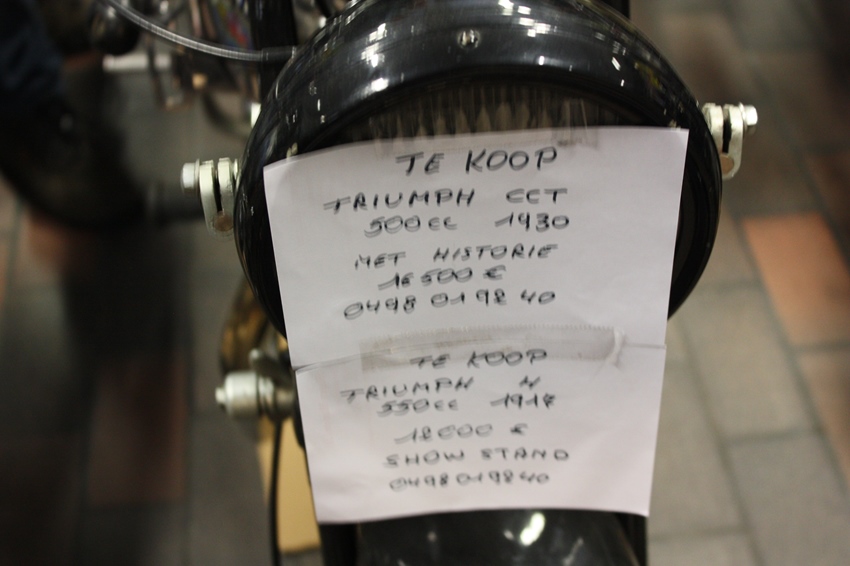 TE KOOP
TRIUMPH CCT
500cc 1930
MET HISTORIE
16 500 €
0498 01 98 40
TE KOOP
TRIUMPH H
550cc 1917
18000 €
SHOW STAND
0498 01 98 40